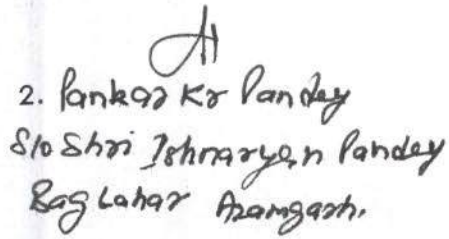 2. Pankaj Kr Pandey
S/o Shri Ishnarayan Pandey
Bag Lahar Azamgarh.